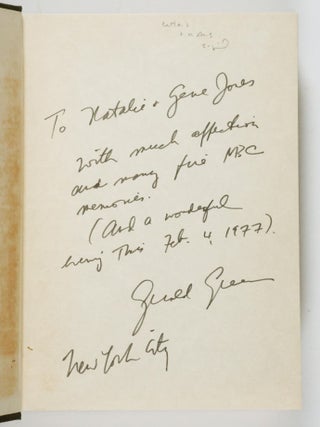 To Natalie & Gene Jones
With much affection
and many fine NBC
memories.
(And a wonderful
evening this Feb. 4, 1977).
Gerald Green
New York City